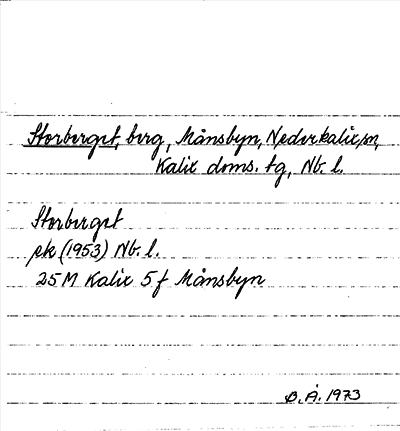 Storberget, berg, Månsbyn, Nederkalix sn,
Kalix doms. tg, Nb. l.
Storberget
ek (1953) Nb. l.
25 M Kalix 5 f Månsbyn
B. Å. 1973